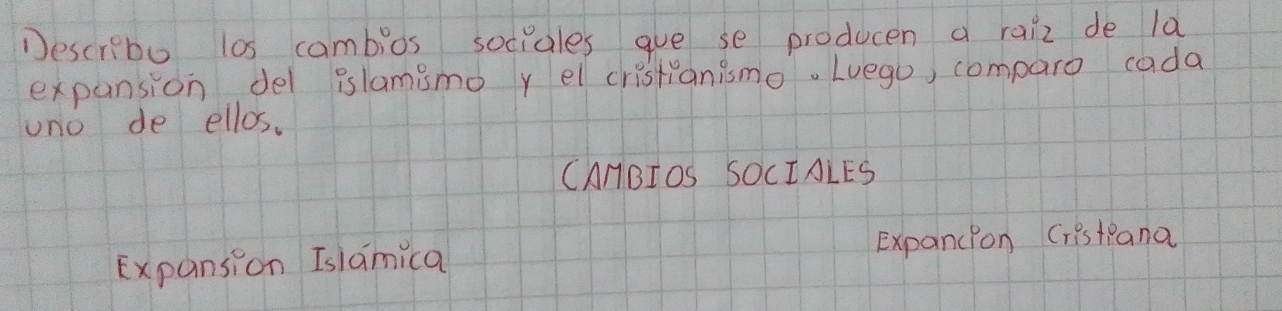 Describo los cambios sociales que se producen a raiz de la
expansión del islamismo y el cristianismo. Luego, comparo cada
uno de ellos.
CAMBIOS SOCIALES
Expansion Islámica
Expancion Cristiana